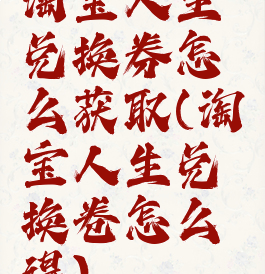 淘宝人生
兑换券怎
么获取(淘
宝人生兑
换卷怎么
得)